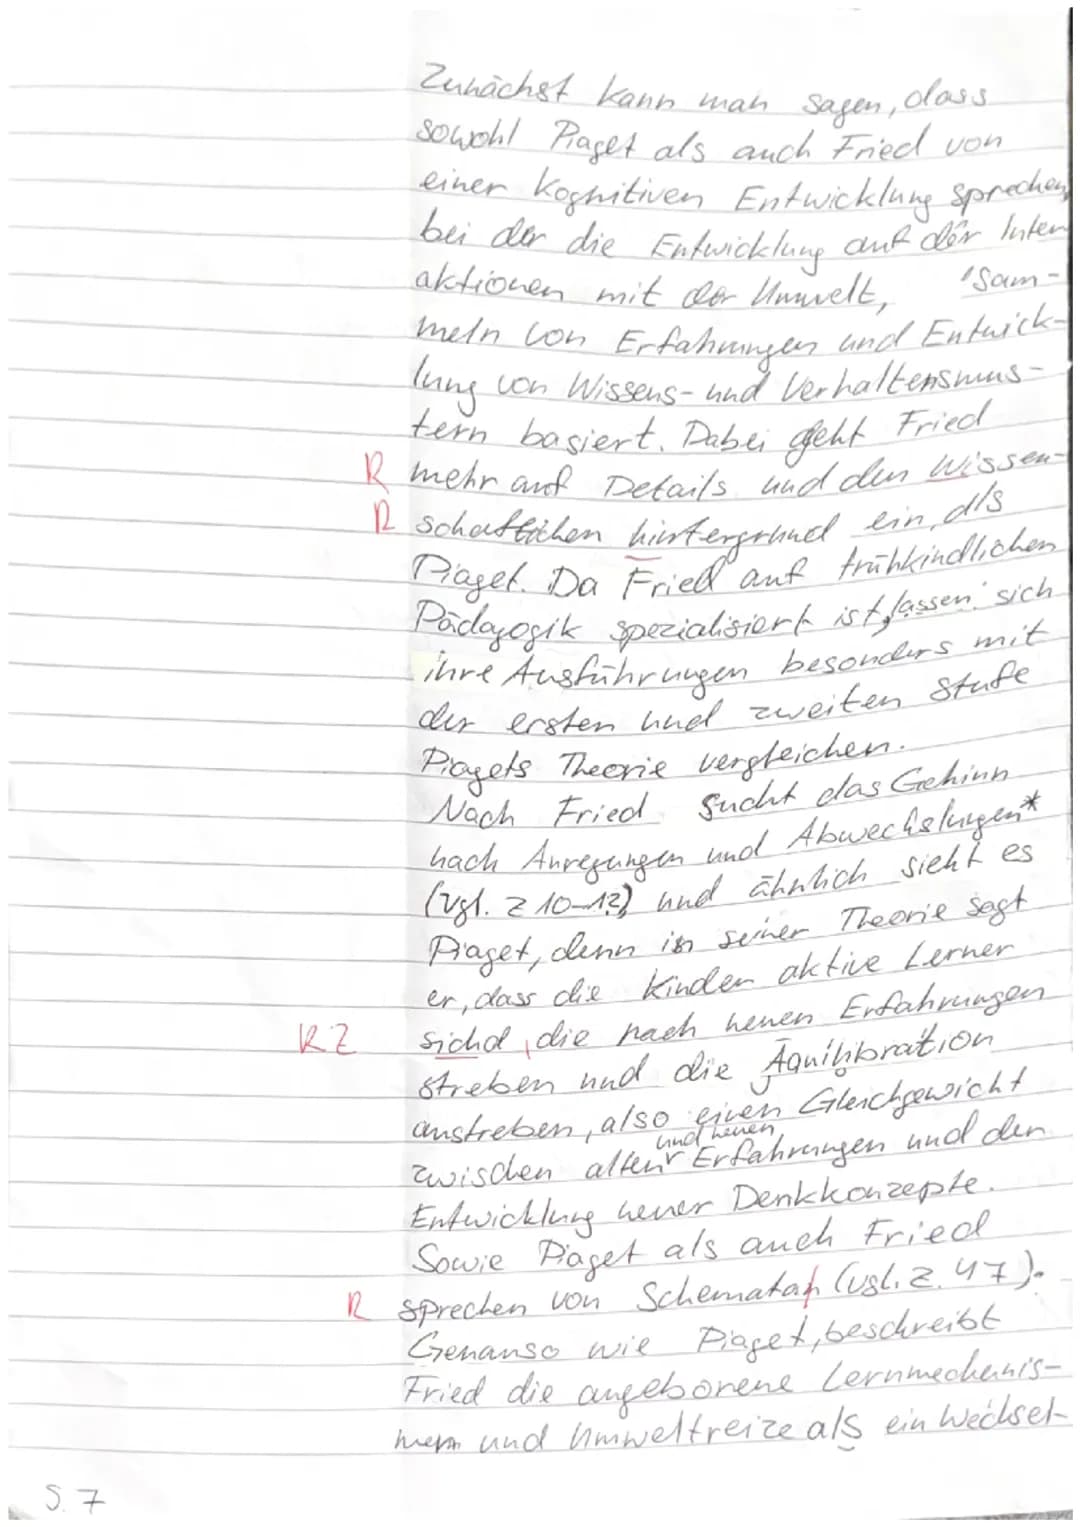 Zunächst kann man sagen, dass
sowohl Piaget als auch Fried von
einer kognitiven Entwicklung sprechen,
bei der die Entwicklung auf der Inter
aktionen mit der Umwelt, Sam-
meln von Erfahrungen und Entwick-
lung von Wissens- und Verhaltensmus-
tern basiert. Dabei geht Fried
R mehr auf Details und den Wissen-
R schaftlichen hintergrund ein, als
Piaget. Da Fried auf frühkindlichen
Pädagogik spezialisiert ist, lassen sich
ihre Ausführungen besonders mit
der ersten und zweiten Stufe
Piagets Theorie vergleichen.
Nach Fried sucht das Gehinn
nach Anregungen und Abwechslungen*
(vgl. Z 10-12) und ähnlich sieht es
Piaget, denn in seiner Theorie sagt
er, dass die Kinder aktive Lerner
RZ sichd, die nach neuen Erfahrungen
streben und die Äquilibration
anstreben, also einen Gleichgewicht
und neuen
zwischen alten Erfahrungen und den
Entwicklung neuer Denkkonzepte.
Sowie Piaget als auch Fried
R sprechen von Schemata (vgl. Z. 47).
Genauso wie Piaget, beschreibt
Fried die angeborene Lernmechanis-
men und Umweltreize als ein Wechsel-
S. 7